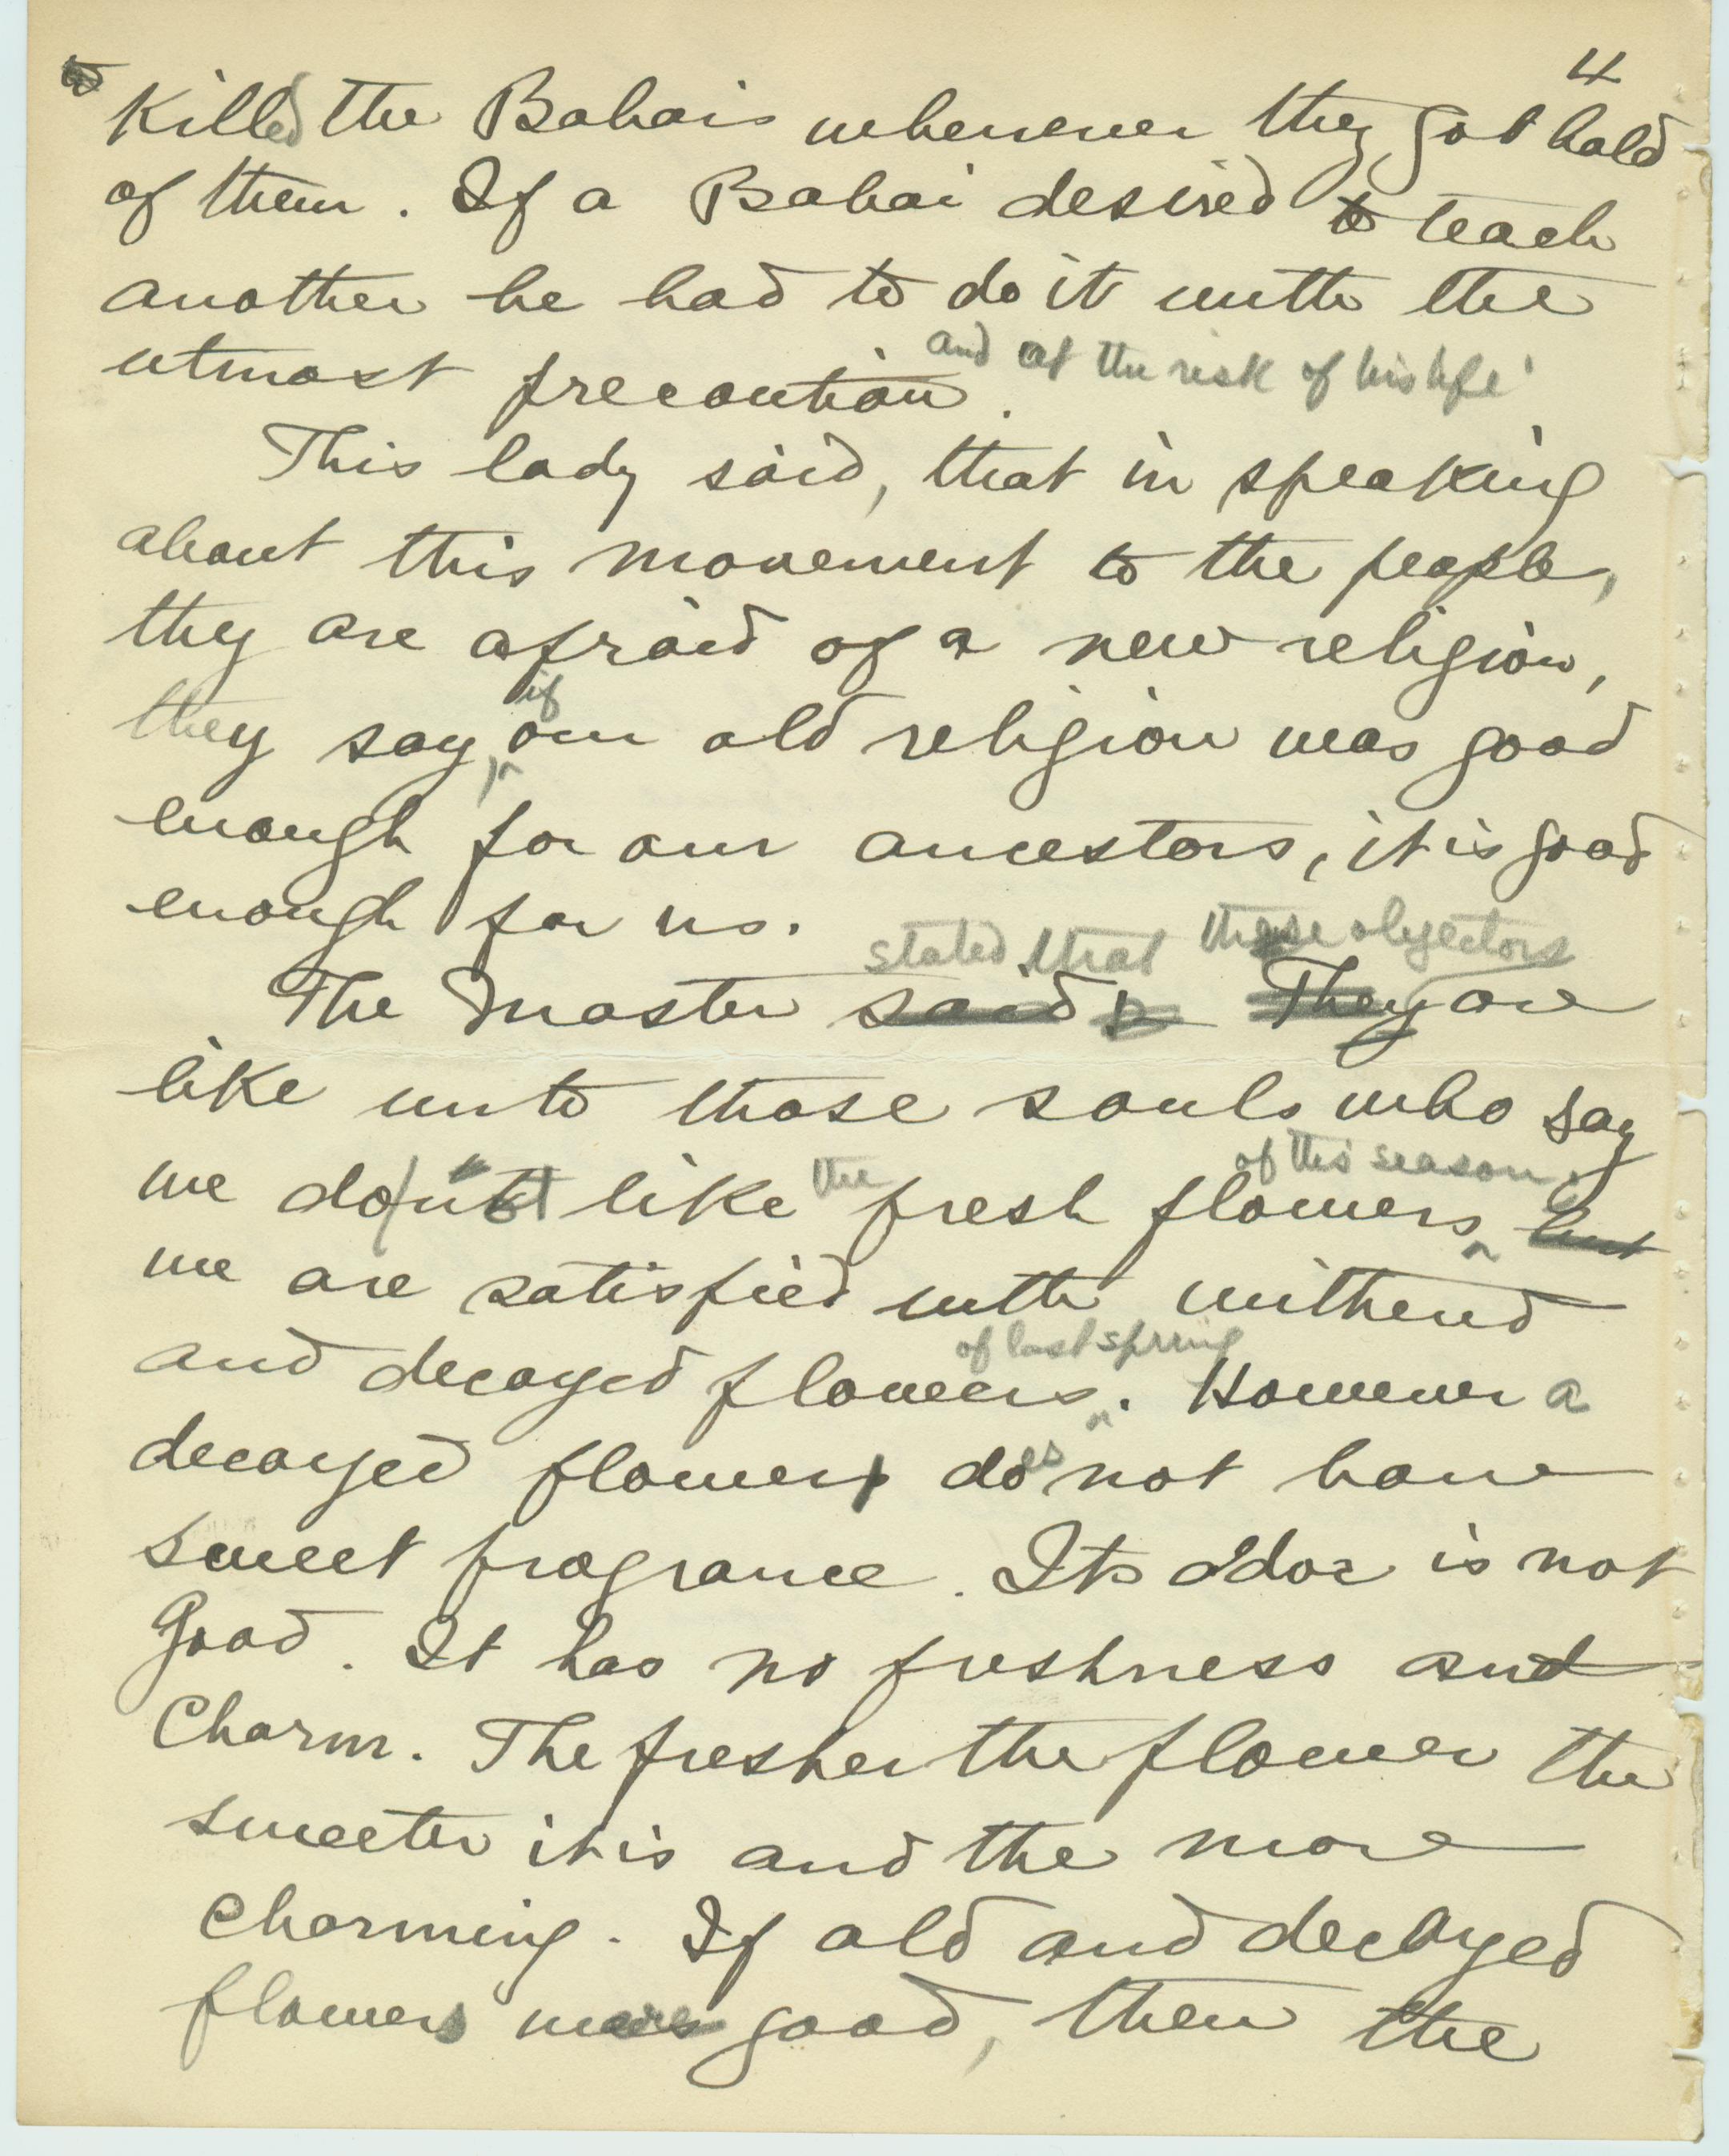 4
Killed the Bahais whenever they got hold
of them. If a Bahai desired to teach
another he had to do it with the
utmost precaution and at the risk of his life.
This lady said, that in speaking
about this movement to the people,
they are afraid of a new religion,
they say, if our old religion was good
enough for our ancestors, it is good
enough for us.
stated that these objectors
The Master said They are
like unto those souls who say
we do not like the fresh flowers of this season. but
we are satisfied with withered
and decayed flowers of last spring. However a
decayed flower does not have
sweet fragrance. Its odor is not
good. It has no freshness and
Charm. The fresher the flower the
sweeter it is and the more
charming. If old and decayed
flowers were good, then the